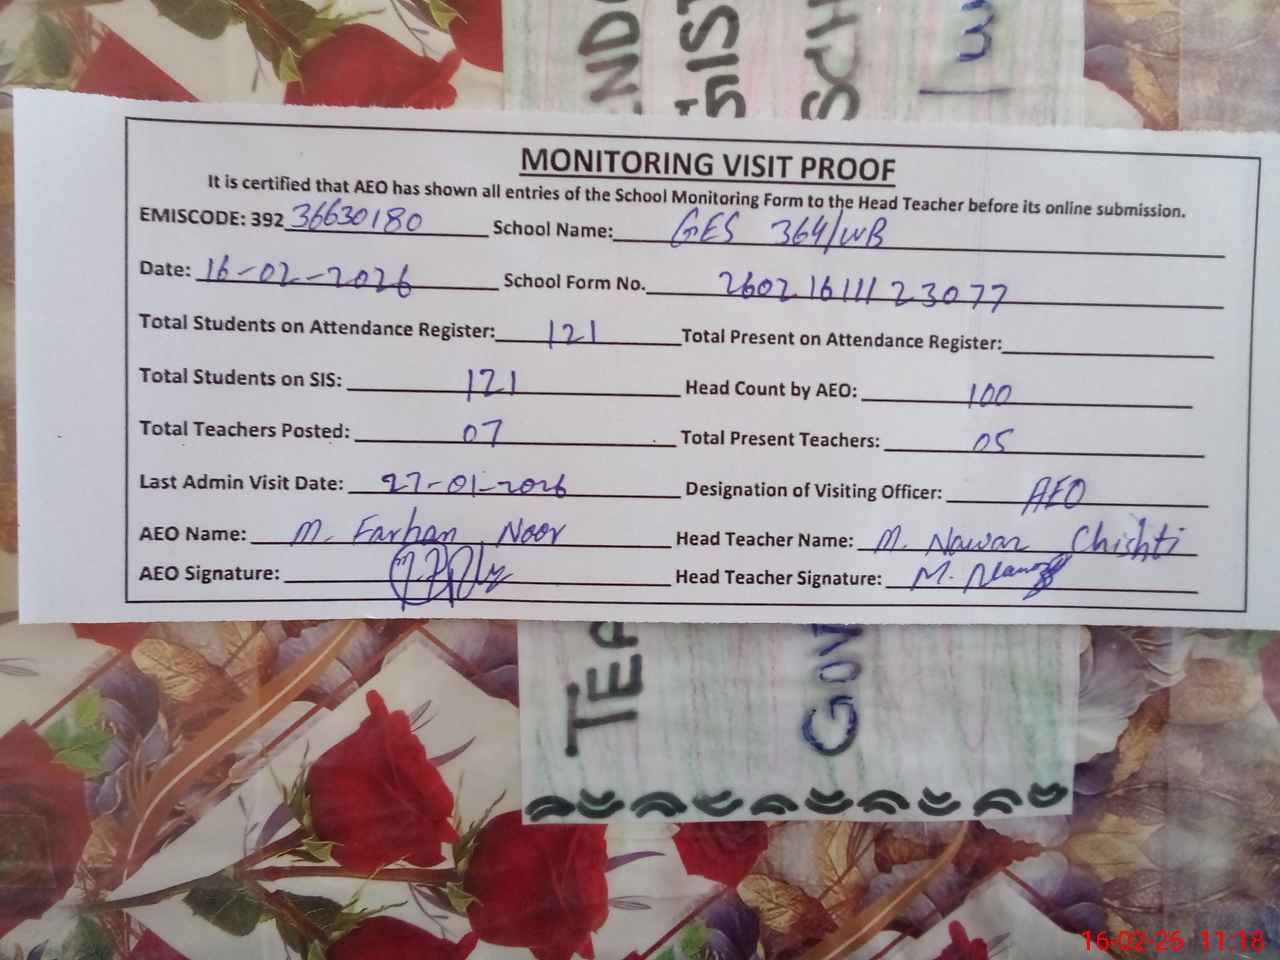 END
SIST
SCH
MONITORING VISIT PROOF
It is certified that AEO has shown all entries of the School Monitoring Form to the Head Teacher before its online submission.
EMISCODE: 392 36630180 School Name: GES 364/WB
Date: 16-02-2026 School Form No. 260216111123077
Total Students on Attendance Register: 121 Total Present on Attendance Register:
Total Students on SIS: 121 Head Count by AEO: 100
Total Teachers Posted: 07 Total Present Teachers: 05
Last Admin Visit Date: 27-01-2026 Designation of Visiting Officer: AEO
AEO Name: M. Farhan Noor Head Teacher Name: M. Nawaz Chishti
AEO Signature: Head Teacher Signature: M. Nawaz
TEA
GOV
16-02-26 11:18